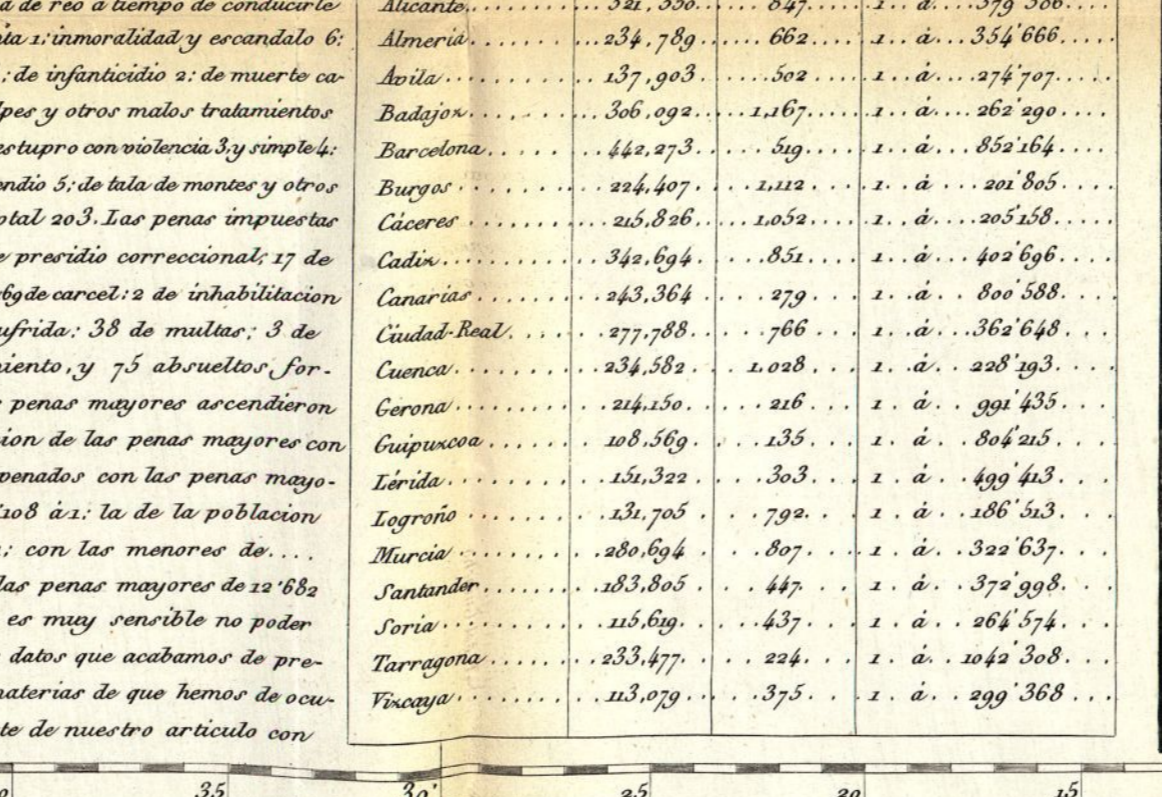 a de reo a tiempo de conducirle
nta 1: inmoralidad y escandalo 6:
; de infanticidio 2: de muerte ca-
lpes y otros malos tratamientos
estupro con violencia 3. y simple 4:
endio 5: de tala de montes y otros
otal 203. Las penas impuestas
e presidio correccional; 17 de
69 de carcel: 2 de inhabilitacion
ufrida: 38 de multas; 3 de
iento, y 75 absueltos, for-
s penas mayores ascendieron
ion de las penas mayores con
penados con las penas mayo-
'108 á 1: la de la poblacion
: con las menores de....
las penas mayores de 12'682
es muy sensible no poder
datos que acabamos de pre-
naterias de que hemos de ocu-
te de nuestro articulo con
Alicante 321,550 647 1 á 579'586
Almeria 234,789 662 1 á 354'666
Avila 137,903 502 1 á 274'707
Badajoz 306,092 1,167 1 á 262'290
Barcelona 442,273 519 1 á 852'164
Burgos 224,407 1,112 1 á 201'805
Cáceres 215,826 1,052 1 á 205'158
Cadiz 342,694 851 1 á 402'696
Canarias 243,364 279 1 á 800'588
Ciudad-Real 277,788 766 1 á 362'648
Cuenca 234,582 1,028 1 á 228'193
Gerona 214,150 216 1 á 991'435
Guipuzcoa 108,569 135 1 á 804'215
Lérida 151,322 303 1 á 499'413
Logroño 131,705 792 1 á 186'513
Murcia 280,694 807 1 á 322'637
Santander 183,805 447 1 á 372'998
Soria 115,619 437 1 á 264'574
Tarragona 233,477 224 1 á 1042'308
Vizcaya 113,079 375 1 á 299'368
35 30' 25 20 15